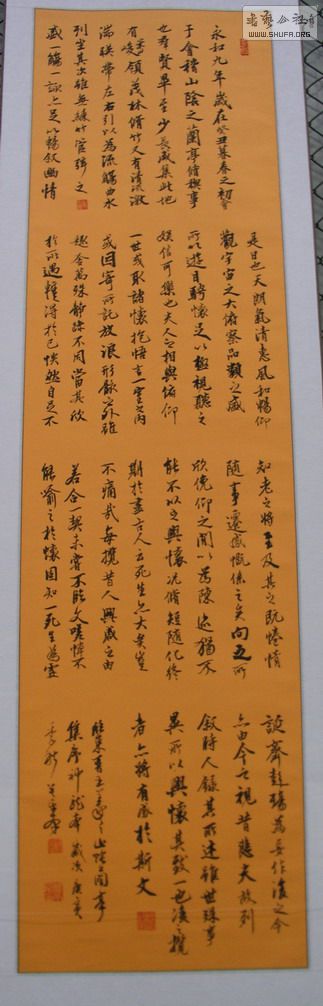 書藝公社
WWW.SHUFA.ORG
永和九年歲在癸丑暮春之初會
于會稽山陰之蘭亭脩禊事
也群賢畢至少長咸集此地
有崇山峻領茂林脩竹又有清流激
湍暎帶左右引以為流觴曲水
列坐其次雖無絲竹管弦之
盛一觴一詠亦足以暢敘幽情
是日也天朗氣清惠風和暢仰
觀宇宙之大俯察品類之盛
所以遊目騁懷足以極視聽之
娛信可樂也夫人之相與俯仰
一世或取諸懷抱悟言一室之內
或因寄所託放浪形骸之外雖
趣舍萬殊靜躁不同當其欣
於所遇蹔得於己怏然自足不
知老之將至及其之既惓情
隨事遷感慨係之矣向之所
欣俛仰之閒以為陳迹猶不
能不以之興懷況脩短隨化終
期於盡古人云死生亦大矣豈
不痛哉每攬昔人興感之由
若合一契未嘗不臨文嗟悼不
能喻之於懷固知一死生為虛
誕齊彭殤為妄作後之今
亦由今之視昔悲夫故列
敘時人錄其所述雖世殊事
異所以興懷其致一也後之攬
者亦將有感於斯文
臨東晉王羲之山陰蘭亭
集序神龍本歲次庚寅
季秋